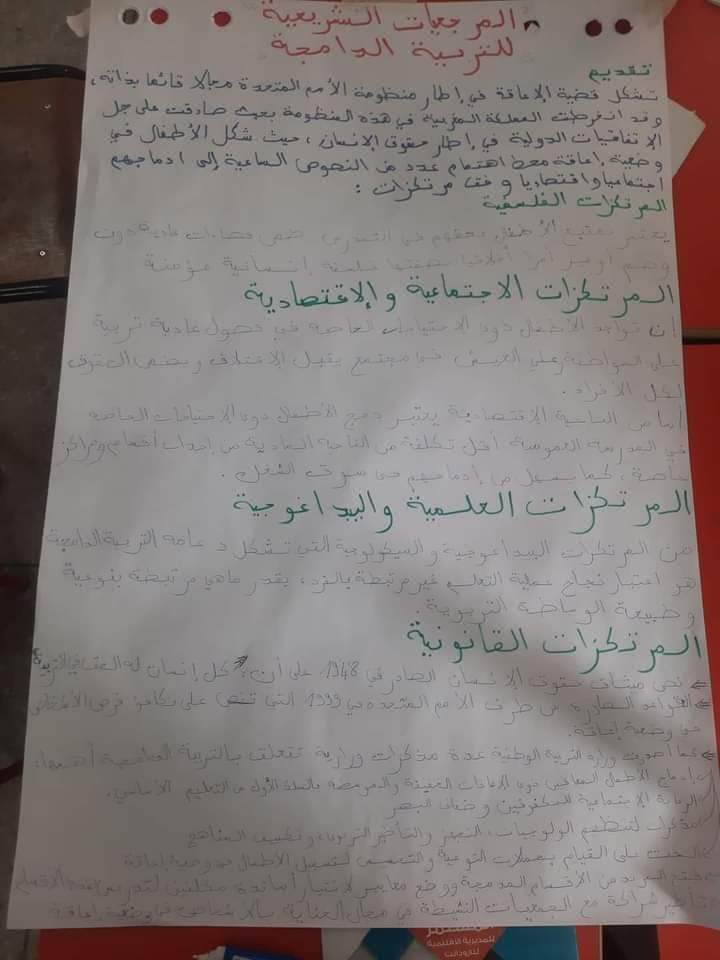 المرجعيات التشريعية
للتربية الدامجة
تقديم
تشكل قضية الإعاقة في إطار منظومة الأمم المتحدة مجالا قائما بذاته،
وقد انخرطت المملكة المغربية في هذه المنظومة بعدما صادقت على جل
الاتفاقيات الدولية في إطار حقوق الإنسان، حيث شكل الأطفال في
وضعية إعاقة محط اهتمام عدد من النصوص الساعية إلى ادماجهم
اجتماعيا واقتصاديا وفق مرتكزات :
المرتكزات الفلسفية
يعتبر تمتيع الأطفال بحقهم في التمدرس ضمن فضاءات عادية دون
إنسانية مؤمنة
المرتكزات الاجتماعية والإقتصادية
إن تواجد الأطفال ذوي الاحتياجات الخاصة في فصول عادية تربية
على المواطنة وعلى العيش في مجتمع يقبل الاختلاف ويضمن الحقوق
لكل الأفراد.
أما من الناحية الاقتصادية يعتبر دمج الأطفال ذوي الاحتياجات الخاصة
في المدرسة العمومية أقل تكلفة من الناحية المادية من إحداث أقسام ومراكز
خاصة، كما يسهل من إدماجهم في سوق الشغل.
المرتكزات العلمية والبيداغوجية
من المرتكزات البيداغوجية والسيكولوجية التي تشكل دعامة التربية الدامجة
هو اعتبار نجاح عملية التعلم غير مرتبطة بالفرد، بقدر ماهي مرتبطة بنوعية
وطبيعة الوساطة التربوية.
المرتكزات القانونية
نص ميثاق حقوق الإنسان الصادر في 1948 على أن "كل إنسان له الحق في التربية"
القواعد الصادرة من طرف الأمم المتحدة في 1993 التي تنص على تكافؤ فرص الأطفال
في وضعية إعاقة.
كما أصدرت وزارة التربية الوطنية عدة مذكرات وزارية تتعلق بالتربية الدامجة أهمها:
إدماج الأطفال المعاقين ذوي الإعاقات الخفيفة بالسلك الأول من التعليم الأساسي.
الرعاية الاجتماعية للمكفوفين وضعاف البصر
مذكرات لتنظيم الولوجيات، التجهيز والتأطير التربوي، وتكييف المناهج
الحث على القيام بحملات التوعية والتحسيس لتسجيل الأطفال في وضعية إعاقة
فتح المزيد من الأقسام المدمجة ووضع معايير لاختيار أساتذة مختصين لتدريس بهذه الأقسام
تأطير شراكة مع الجمعيات النشيطة في مجال العناية بالأشخاص في وضعية إعاقة
للمديرية الاقليمية
لتارودانت